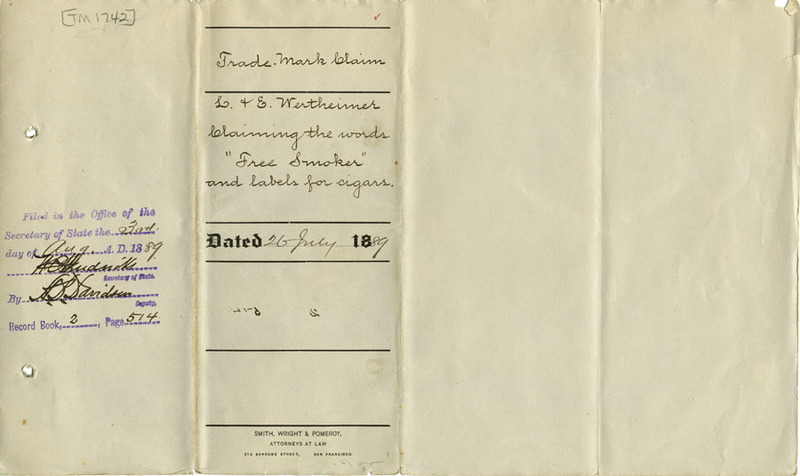 [TM 1742]
Filed in the Office of the
Secretary of State the 2nd
day of Aug. A. D. 1889
Secretary of State.
By Davidson
Deputy,
Record Book, 2, Page 514
Trade-Mark Claim
L. & E. Wertheimer
Claiming the words
"Free Smoker"
and labels for cigars.
Dated 26 July 1889
SMITH, WRIGHT & POMEROY,
ATTORNEYS AT LAW
SANSOME STREET, SAN FRANCISCO.